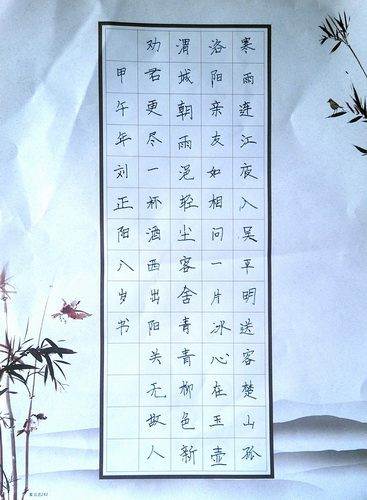 寒雨连江夜入吴平明送客楚山孤
洛阳亲友如相问一片冰心在玉壶
渭城朝雨浥轻尘客舍青青柳色新
劝君更尽一杯酒西出阳关无故人
甲午年刘正阳八岁书